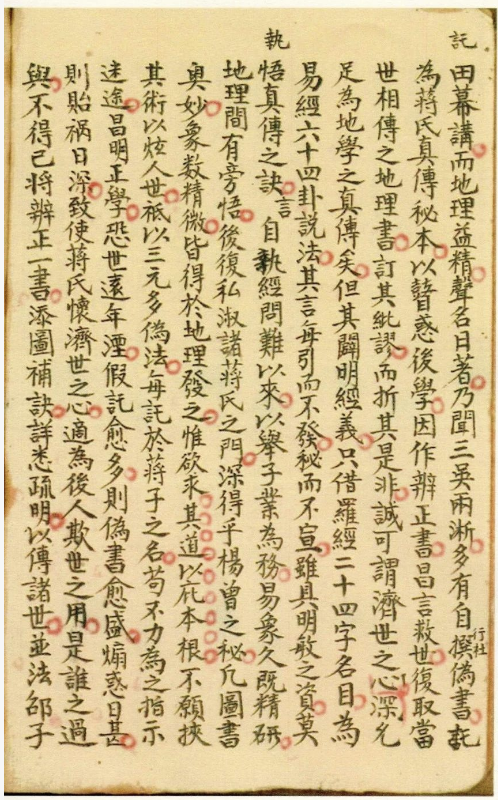 託
田幕講而地理益精聲名日著乃聞三吳兩淅多有自撰偽書託
行社
為蔣氏真傳秘本以瞽惑後學因作辨正書昌言救世復取當
世相傳之地理書訂其紕謬而折其是非誠可謂濟世之心深允
足為地學之真傳矣但其闢明經義只借羅經二十四字名目為
易經六十四卦説法其言每引而不發秘而不宣雖具明敏之資莫
執
悟真傳之訣言自執經問難以來以舉子業為務易象久既精研
地理間有旁悟後復私淑諸蔣氏之門深得乎楊曾之秘凢圖書
奥妙象数精微皆得於地理發之惟欲求其道以庇本根不願挾
其術以炫人世祗以三元多偽法每託於蔣子之名苟不力為之指示
迷途昌明正學恐世遠年湮假託愈多則偽書愈盛煽惑日甚
則貽禍日深致使蔣氏懷濟世之心適為後人欺世之用是誰之過
與不得已將辨正一書添圖補訣詳悉疏明以傳諸世並法邵子